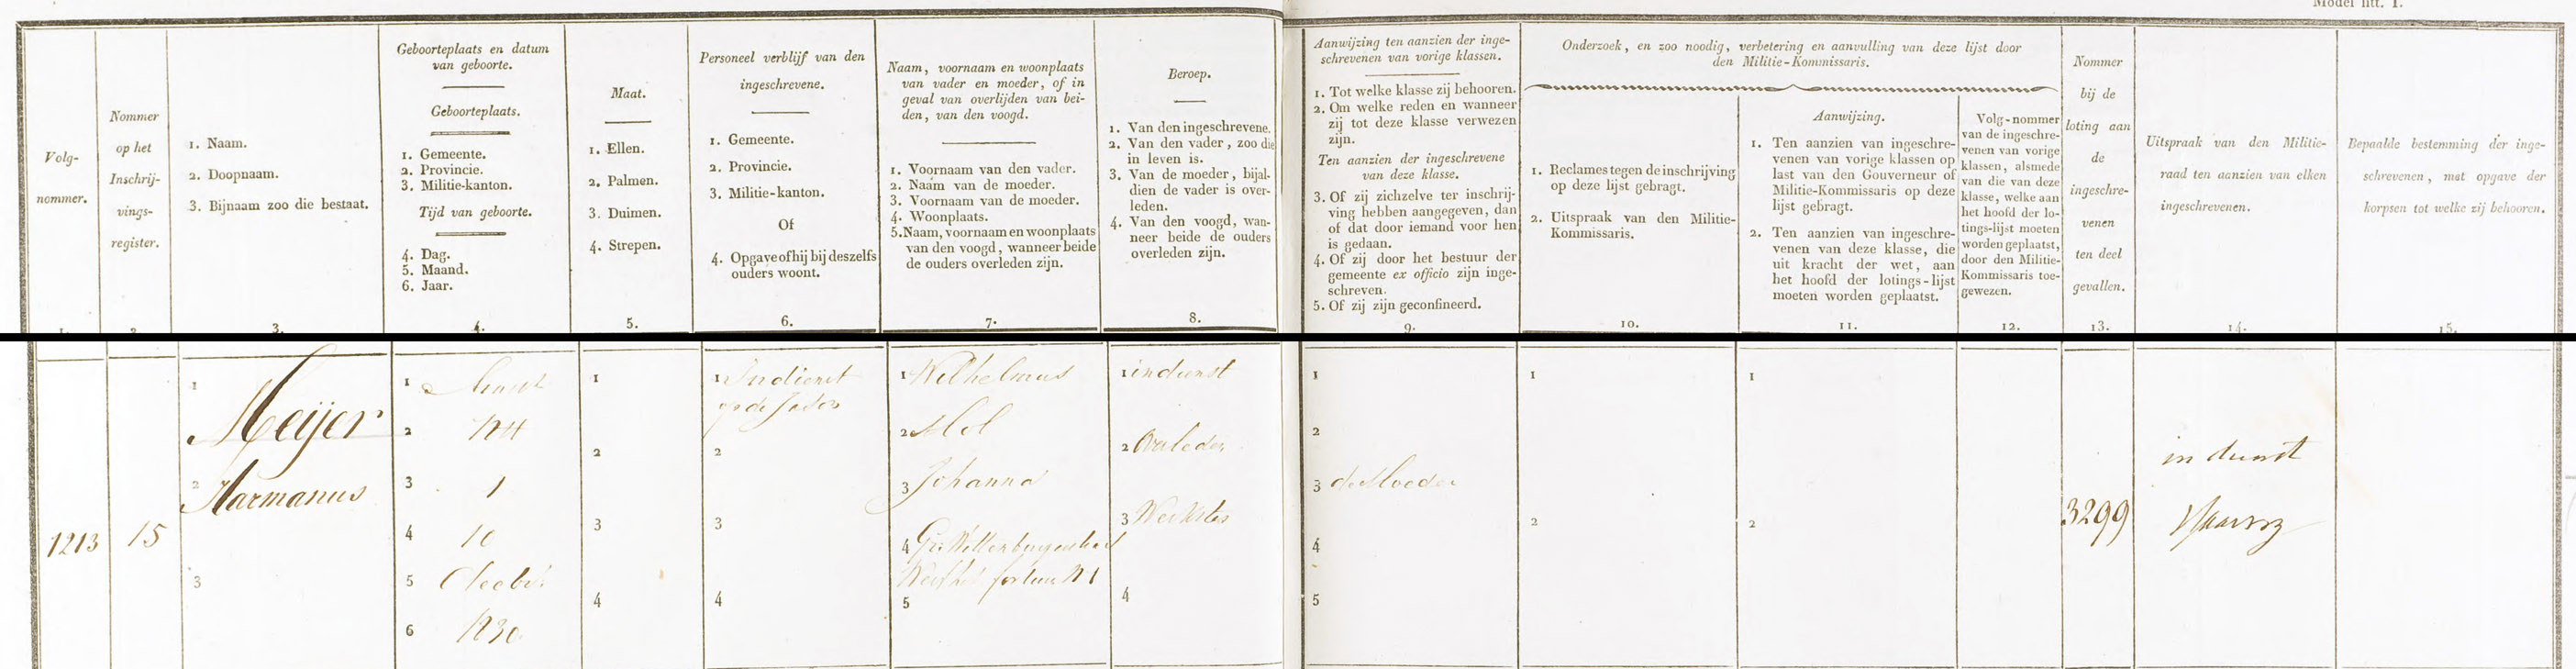 Model litt. I.
Volg-
nommer.
1.
Nommer
op het
Inschrij-
vings-
register.
2.
1. Naam.
2. Doopnaam.
3. Bijnaam zoo die bestaat.
3.
Geboorteplaats en datum
van geboorte.
Geboorteplaats.
1. Gemeente.
2. Provincie.
3. Militie-kanton.
Tijd van geboorte.
4. Dag.
5. Maand.
6. Jaar.
4.
Maat.
1. Ellen.
2. Palmen.
3. Duimen.
4. Strepen.
5.
Personeel verblijf van den
ingeschrevene.
1. Gemeente.
2. Provincie.
3. Militie-kanton.
Of
4. Opgave of hij bij deszelfs
ouders woont.
6.
Naam, voornaam en woonplaats
van vader en moeder, of in
geval van overlijden van bei-
den, van den voogd.
1. Voornaam van den vader.
2. Naam van de moeder.
3. Voornaam van de moeder.
4. Woonplaats.
5. Naam, voornaam en woonplaats
van den voogd, wanneer beide
de ouders overleden zijn.
7.
Beroep.
1. Van den ingeschrevene.
2. Van den vader, zoo die
in leven is.
3. Van de moeder, bijal-
dien de vader is over-
leden.
4. Van den voogd, wan-
neer beide de ouders
overleden zijn.
8.
Aanwijzing ten aanzien der inge-
schrevenen van vorige klassen.
1. Tot welke klasse zij behooren.
2. Om welke reden en wanneer
zij tot deze klasse verwezen
zijn.
Ten aanzien der ingeschrevene
van deze klasse.
3. Of zij zichzelve ter inschrij-
ving hebben aangegeven, dan
of dat door iemand voor hen
is gedaan.
4. Of zij door het bestuur der
gemeente ex officio zijn inge-
schreven.
5. Of zij zijn geconfineerd.
9.
Onderzoek, en zoo noodig, verbetering en aanvulling van deze lijst door
den Militie-Kommissaris.
1. Reclames tegen de inschrijving
op deze lijst gebragt.
2. Uitspraak van den Militie-
Kommissaris.
10.
Aanwijzing.
1. Ten aanzien van ingeschre-
venen van vorige klassen op
last van den Gouverneur of
Militie-Kommissaris op deze
lijst gebragt.
2. Ten aanzien van ingeschre-
venen van deze klasse, die
uit kracht der wet, aan
het hoofd der lotings-lijst
moeten worden geplaatst.
11.
Volg-nommer
van de ingeschre-
venen van vorige
klassen, alsmede
van die van deze
klasse, welke aan
het hoofd der lo-
tings-lijst moeten
worden geplaatst,
door den Militie-
Kommissaris toe-
gewezen.
12.
Nommer
bij de
loting aan
de
ingeschre-
venen
ten deel
gevallen.
13.
Uitspraak van den Militie-
raad ten aanzien van elken
ingeschrevenen.
14.
Bepaalde bestemming der inge-
schrevenen, met opgave der
korpsen tot welke zij behooren.
15.
1213
15
1
Meijer
2 Harmanus
3
1
2 NH
3 1
4 10
5 October
6 1830
1
2
3
4
1 In dienst
op de Jason
2
3
4
1 Wilhelmus
2 Mol
3 Johanna
4
5
1 in dienst
2 Overleden
3 Werkster
4
1
2
3 de Moeder
4
5
1
2
1
2
3299
in dienst